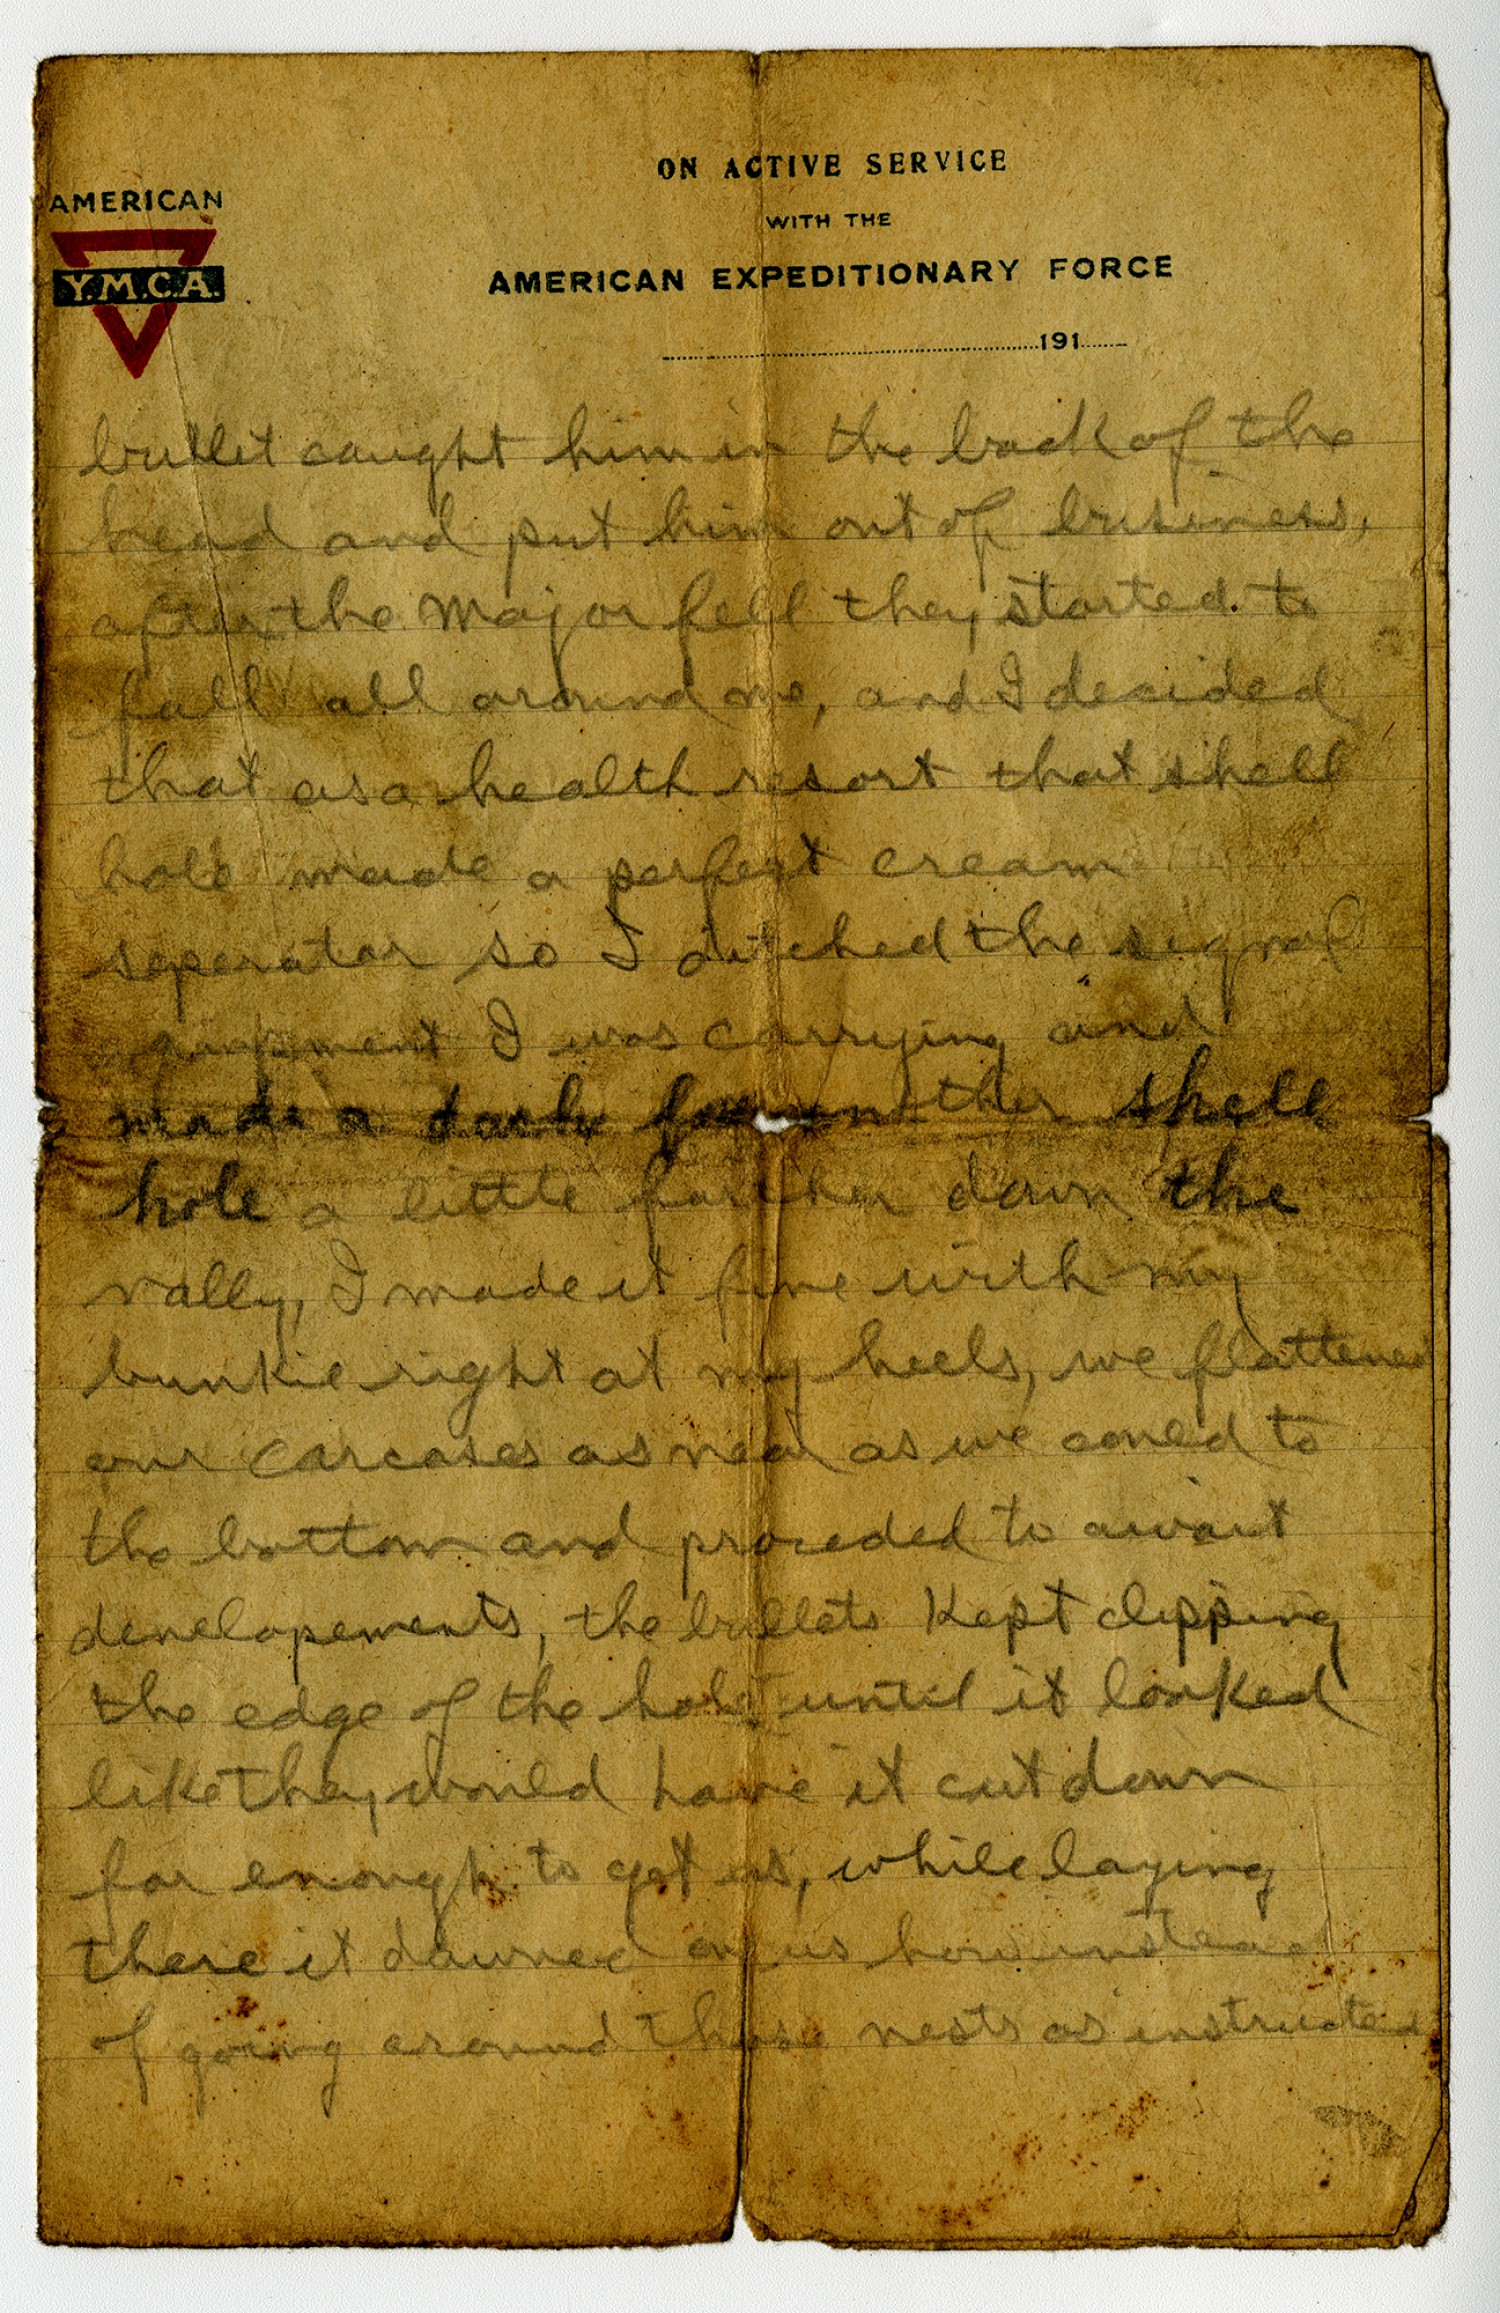 ON ACTIVE SERVICE
WITH THE
AMERICAN EXPEDITIONARY FORCE
191
AMERICAN
Y.M.C.A.
bullet caught him in the back of the
head and put him out of business,
after the Major fell they started to
fall all around me, and I decided
that as a health resort that shell
hole made a perfect cream
seperator so I ditched the signal
I was carrying and
made a dash for another shell
hole a little farther down the
vally, I made it fine with my
bunkie right at my heels, we flattened
our carcases as near as we coued to
the bottom and proceded to await
developements, the bullets kept clipping
the edge of the hole until it looked
like they would have it cut down
far enough to get us, while laying
there it dawned on us how instead
of going around those nests as instructed